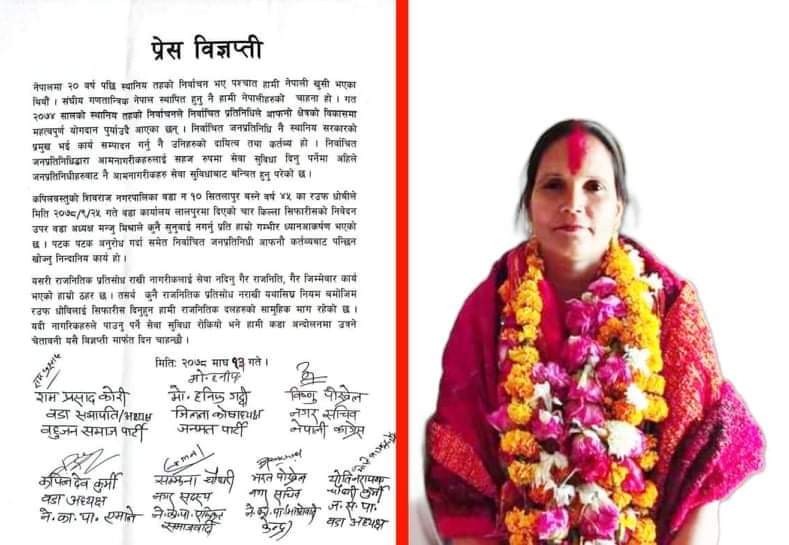 प्रेस विज्ञप्ती
नेपालमा २० वर्ष पछि स्थानिय तहको निर्वाचन भए पश्चात हामी नेपाली खुसी भएका
थियौं । संघीय गणतान्त्रिक नेपाल स्थापित हुनु नै हामी नेपालीहरुको चाहना हो । गत
२०७४ सालको स्थानिय तहको निर्वाचनले निर्वाचित प्रतिनिधिले आफनो क्षेत्रको विकासमा
महत्वपुर्ण योगदान पुर्याउदै आएका छन् । निर्वाचित जनप्रतिनिधि नै स्थानिय सरकारको
प्रमुख भई कार्य सम्पादन गर्नु नै उनिहरुको दायित्व तथा कर्तव्य हो । निर्वाचित
जनप्रतिनिधिद्वारा आमनागरीकहरुलाई सहज रुपमा सेवा सुविधा दिनु पर्नेमा अहिले
जनप्रतिनिधीहरुबाट नै आमनागरीकहरु सेवा सुविधाबाट बन्चित हुनु परेको छ ।
कपिलवस्तुको शिवराज नगरपालिका वडा न १० सितलापुर बस्ने वर्ष ४५ का रउफ धोबीले
मिति २०७८/९/२५ गते वडा कार्यालय लालपुरमा दिएको चार किल्ला सिफारीसको निवेदन
उपर वडा अध्यक्ष मन्जु मिश्राले कुनै सुनुवाई नगर्नु प्रति हाम्रो गम्भीर ध्यानआकर्षण भएको
छ । पटक पटक अनुरोध गर्दा समेत निर्वाचित जनप्रतिनिधी आफनौ कर्तव्यबाट पन्छिन
खोज्नु निन्दानिय कार्य हो ।
यसरी राजनितिक प्रतिसोध राखी नागरीकलाई सेवा नदिनु गैर राजनिति, गैर जिम्मेवार कार्य
भएको हाम्रो ठहर छ । तसर्थ कुनै राजनितिक प्रतिसोध नराखी यथासिघ्र नियम बमोजिम
रउफ धोविलाई सिफारीस दिनुहुन हामी राजनितिक दलहरुको सामुहिक माग रहेको छ ।
यदी नागरिकहरुले पाउनु पर्ने सेवा सुविधा रोकियो भने हामी कडा अन्दोलनमा उत्रने
चेतावनी यसै विज्ञप्ती मार्फत दिन चाहन्छौ ।
मितिः २०७८ माघ १३ गते ।
राम प्रसाद कोरी
वडा सभापति/अध्यक्ष
बहुजन समाज पार्टी
मो. हनिफ गद्दी
जिल्ला कोषाध्यक्ष
जनमत पार्टी
विष्णु पोखेल
नगर सचिव
नेपाली काँग्रेस
कपिलदेव कुर्मी
वडा अध्यक्ष
ने.क.पा. एमाले
चौधरी
नगर सदस्य
समाजवादी
भरत पोखेल
नगर सचिव
केन्द्र
ज.स.पा.
वडा अध्यक्ष